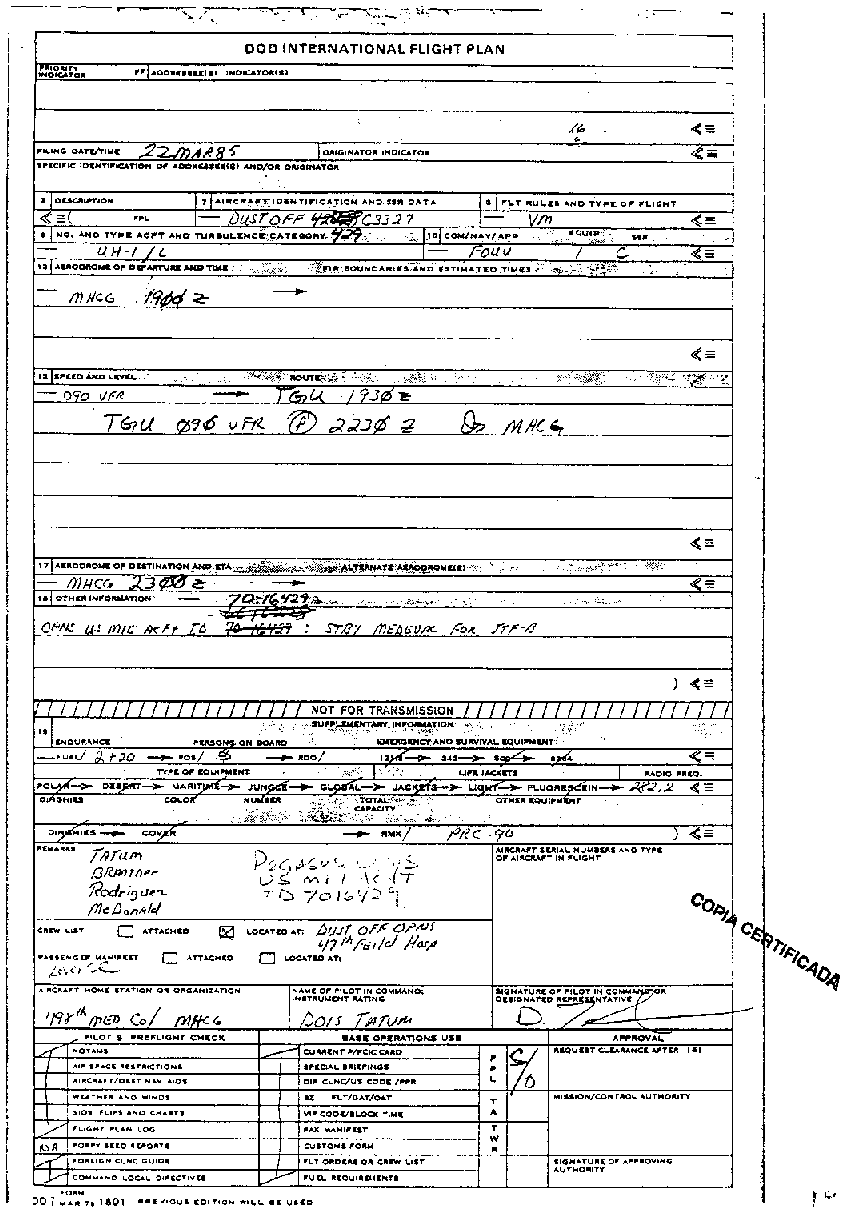 DOD INTERNATIONAL FLIGHT PLAN
PRIORITY INDICATOR FF ADDRESSEE(S) INDICATOR(S)
≪≡
FILING DATE/TIME 22MAR85 ORIGINATOR INDICATOR ≪≡
SPECIFIC IDENTIFICATION OF ADDRESSEE(S) AND/OR ORIGINATOR
3 DESCRIPTION 7 AIRCRAFT IDENTIFICATION AND SSR DATA 8 FLT RULES AND TYPE OF FLIGHT
≪≡( FPL — DUSTOFF C3327 — VM ≪≡
9 NO. AND TYPE ACFT AND TURBULENCE CATEGORY 429 10 COM/NAV/APP EQUIP SSR
— UH-1/L FOUU / C ≪≡
13 AERODROME OF DEPARTURE AND TIME FIR BOUNDARIES AND ESTIMATED TIMES
— MHCG 1900 Z →
≪≡
15 SPEED AND LEVEL ROUTE
— 090 VFR → TGU 1930 Z
TGU 090 VFR (P) 2230 Z MHCG
≪≡
17 AERODROME OF DESTINATION AND ETA ALTERNATE AERODROME(S)
— MHCG 2300 Z → ≪≡
18 OTHER INFORMATION — 70-16429
OPNS US MIL ACFT ID 70-16429 : STBY MEDEVAC FOR JTF-B
) ≪≡
NOT FOR TRANSMISSION
19 SUPPLEMENTARY INFORMATION
ENDURANCE PERSONS ON BOARD EMERGENCY AND SURVIVAL EQUIPMENT
— FUEL/ 2+20 → POB/ → RDO/ 121.5 → 243 → 500 → 8364 ≪≡
TYPE OF EQUIPMENT LIFE JACKETS RADIO FREQ.
POLAR → DESERT → MARITIME → JUNGLE → GLOBAL → JACKETS → LIGHT → FLUORESCEIN → 282.2 ≪≡
DINGHIES COLOR NUMBER TOTAL CAPACITY OTHER EQUIPMENT
DINGHIES → COVER → RMK/ PRC 90 ) ≪≡
REMARKS AIRCRAFT SERIAL NUMBERS AND TYPE OF AIRCRAFT IN FLIGHT
TATUM
Rodriguez
McDonald
PEGASUS OPNS
US MIL ACFT
ID 7016429
CREW LIST ATTACHED LOCATED AT: DUST OFF OPNS
47th Feild Hosp
PASSENGER MANIFEST ATTACHED LOCATED AT:
AIRCRAFT HOME STATION OR ORGANIZATION NAME OF PILOT IN COMMAND, INSTRUMENT RATING SIGNATURE OF PILOT IN COMMAND OR DESIGNATED REPRESENTATIVE
498th MED CO/ MHCG DOIS TATUM
COPIA CERTIFICADA
PILOT'S PREFLIGHT CHECK BASE OPERATIONS USE APPROVAL
NOTAMS CURRENT A/FCIC CARD REQUEST CLEARANCE AFTER (Z)
AIR SPACE RESTRICTIONS SPECIAL BRIEFINGS
AIRCRAFT/DEST NAV AIDS DIP CLNC/US CODE/PPR
WEATHER AND WINDS BZ FLT/DAT/OAT MISSION/CONTROL AUTHORITY
SIDS FLIPS AND CHARTS VIP CODE/BLOCK TIME
FLIGHT PLAN LOG PAX MANIFEST
NA POPPY SEED REPORTS CUSTOMS FORM
FOREIGN CLNC GUIDE FLT ORDERS OR CREW LIST SIGNATURE OF APPROVING AUTHORITY
COMMAND LOCAL DIRECTIVES FUEL REQUIREMENTS
FPL
TA
TWR
DD FORM 1 MAR 75 1801 PREVIOUS EDITION WILL BE USED